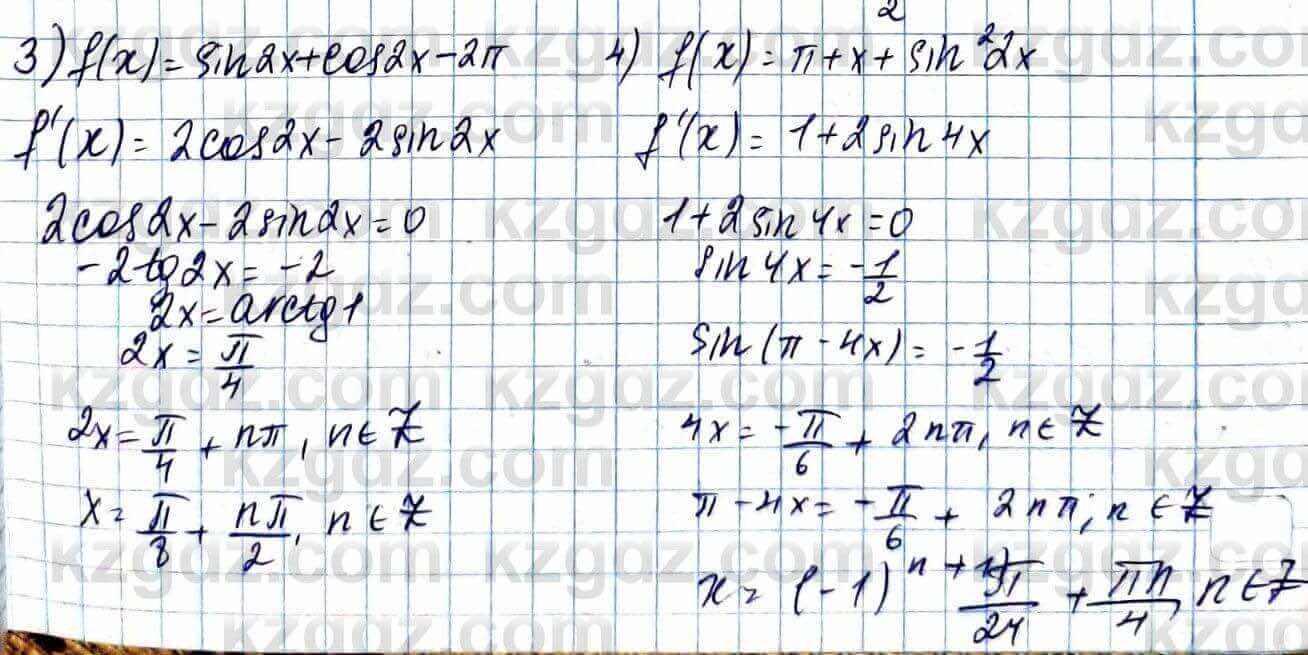 3) f(x) = sin2x + cos2x - 2π
f'(x) = 2cos2x - 2sin2x
2cos2x - 2sin2x = 0
-2tg2x = -2
2x = arctg1
2x = π/4
2x = π/4 + nπ, n ∈ Z
x = π/8 + nπ/2, n ∈ Z
2
4) f(x) = π + x + sin²2x
f'(x) = 1 + 2sin4x
1 + 2sin4x = 0
sin4x = -1/2
sin(π - 4x) = -1/2
4x = -π/6 + 2nπ, n ∈ Z
π - 4x = -π/6 + 2nπ; n ∈ Z
x = (-1)^(n+1) π/24 + πn/4, n ∈ Z
kzgdz.com